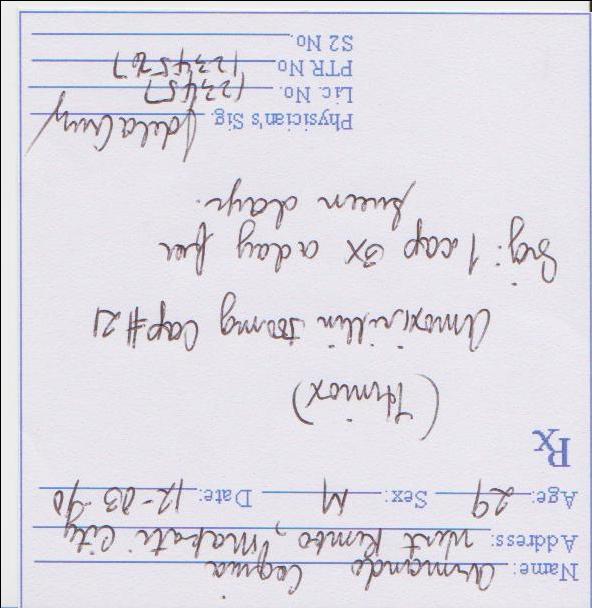 Name: Armando Cagwa
Address: West Rembo, Makati City
Age: 29 Sex: M Date: 12-03-90
Rx
(Himox)
Amoxicillin 500mg Cap #21
Sig: 1 cap 3x a day for
seven days.
Physician's Sig. Jdela Cruz
Lic. No. 123457
PTR No. 1234567
S2 No.